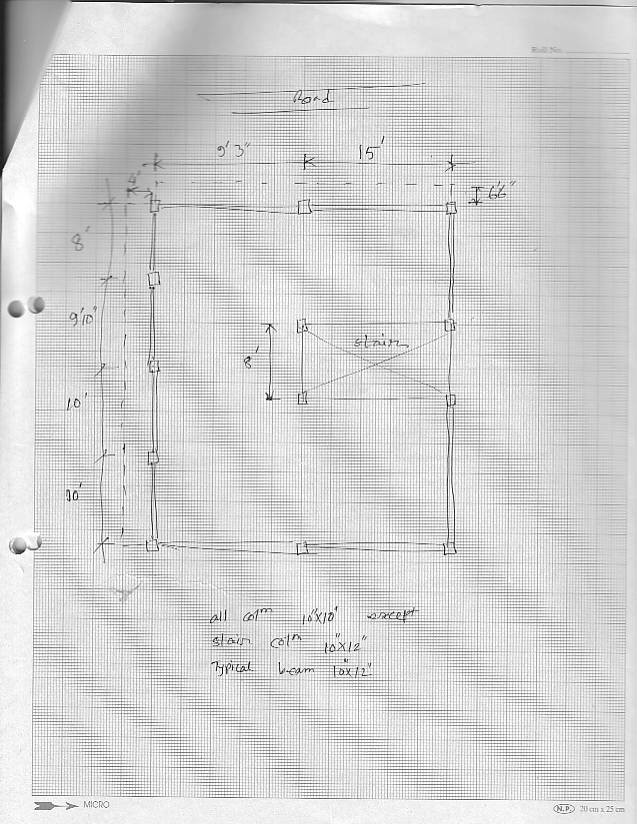 Roll No.
Road
9'3" 15'
4'
6'6"
8'
9'10"
stair
8'
10'
10'
all colm 10"x10" except
stair colm 10"x12"
Typical beam 10"x12"
MICRO
N.P. 20 cm x 25 cm